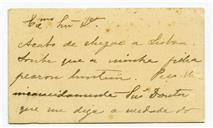 Ex.mo Snr. Dr.
Acabo de chegar a Lisboa.
Soube que a minha filha
peorou hontem. Peço-lhe
encarecidamente Snr. Doutor
que me diga a verdade do